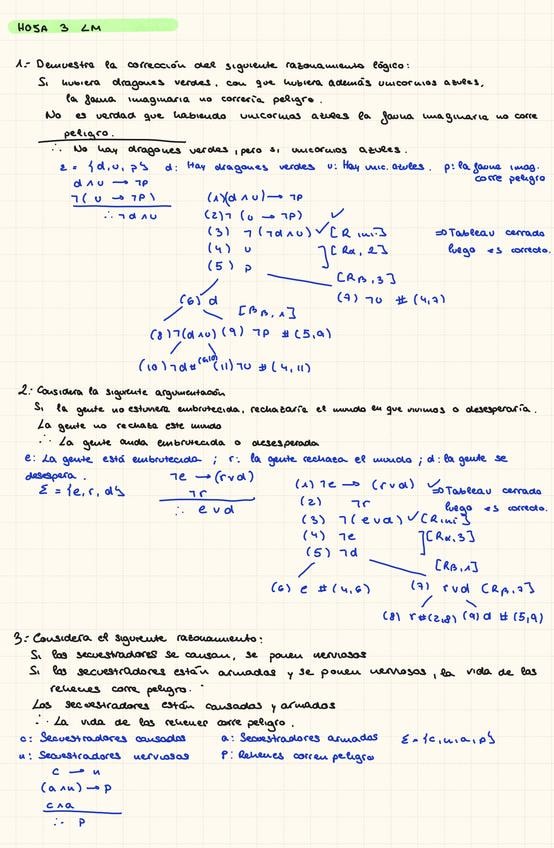 HOJA 3 LM
1.- Demuestra la corrección del siguiente razonamiento lógico:
Si hubiera dragones verdes, con que hubiera además unicornios azules,
la fauna imaginaria no correría peligro.
No es verdad que habiendo unicornios azules la fauna imaginaria no corre
peligro.
∴ No hay dragones verdes, pero si unicornios azules.
Σ = {d, u, p} d: Hay dragones verdes u: Hay unic. azules. p: la fauna imag.
corre peligro
d ∧ u → ¬p
¬(u → ¬p)
∴ ¬d ∧ u
(1) (d ∧ u) → ¬p
(2) ¬(u → ¬p) ✓
(3) ¬(¬d ∧ u) ✓ [R ini.]
(4) u
(5) p ] [Rα, 2]
⇒ Tableau cerrado
luego es correcto.
[Rβ, 3]
(6) d (7) ¬u # (4,7)
[Rβ, 1]
(8) ¬(d ∧ u) (9) ¬p # (5,9)
(10) ¬d # (6,10) (11) ¬u # (4,11)
2.- Considera la siguiente argumentación
Si la gente no estuviera embrutecida, rechazaría el mundo en que vivimos o desesperaría.
La gente no rechaza este mundo
∴ La gente anda embrutecida o desesperada
e: La gente está embrutecida ; r: la gente rechaza el mundo ; d: la gente se
desespera.
Σ = {e, r, d}
¬e → (r ∨ d)
¬r
∴ e ∨ d
(1) ¬e → (r ∨ d) ✓
(2) ¬r
(3) ¬(e ∨ d) ✓ [R ini]
(4) ¬e
(5) ¬d ] [Rα, 3]
⇒ Tableau cerrado
luego es correcto.
[Rβ, 1]
(6) e # (4,6) (7) r ∨ d [Rβ, 7]
(8) r # (2,8) (9) d # (5,9)
3.- Considera el siguiente razonamiento:
Si los secuestradores se cansan, se ponen nerviosos
Si los secuestradores están armados y se ponen nerviosos, la vida de los
rehenes corre peligro.
Los secuestradores están cansados y armados
∴ La vida de los rehenes corre peligro.
c: Secuestradores cansados a: Secuestradores armados Σ = {c, n, a, p}
n: Secuestradores nerviosos P: Rehenes corren peligro
c → n
(a ∧ n) → p
c ∧ a
∴ p